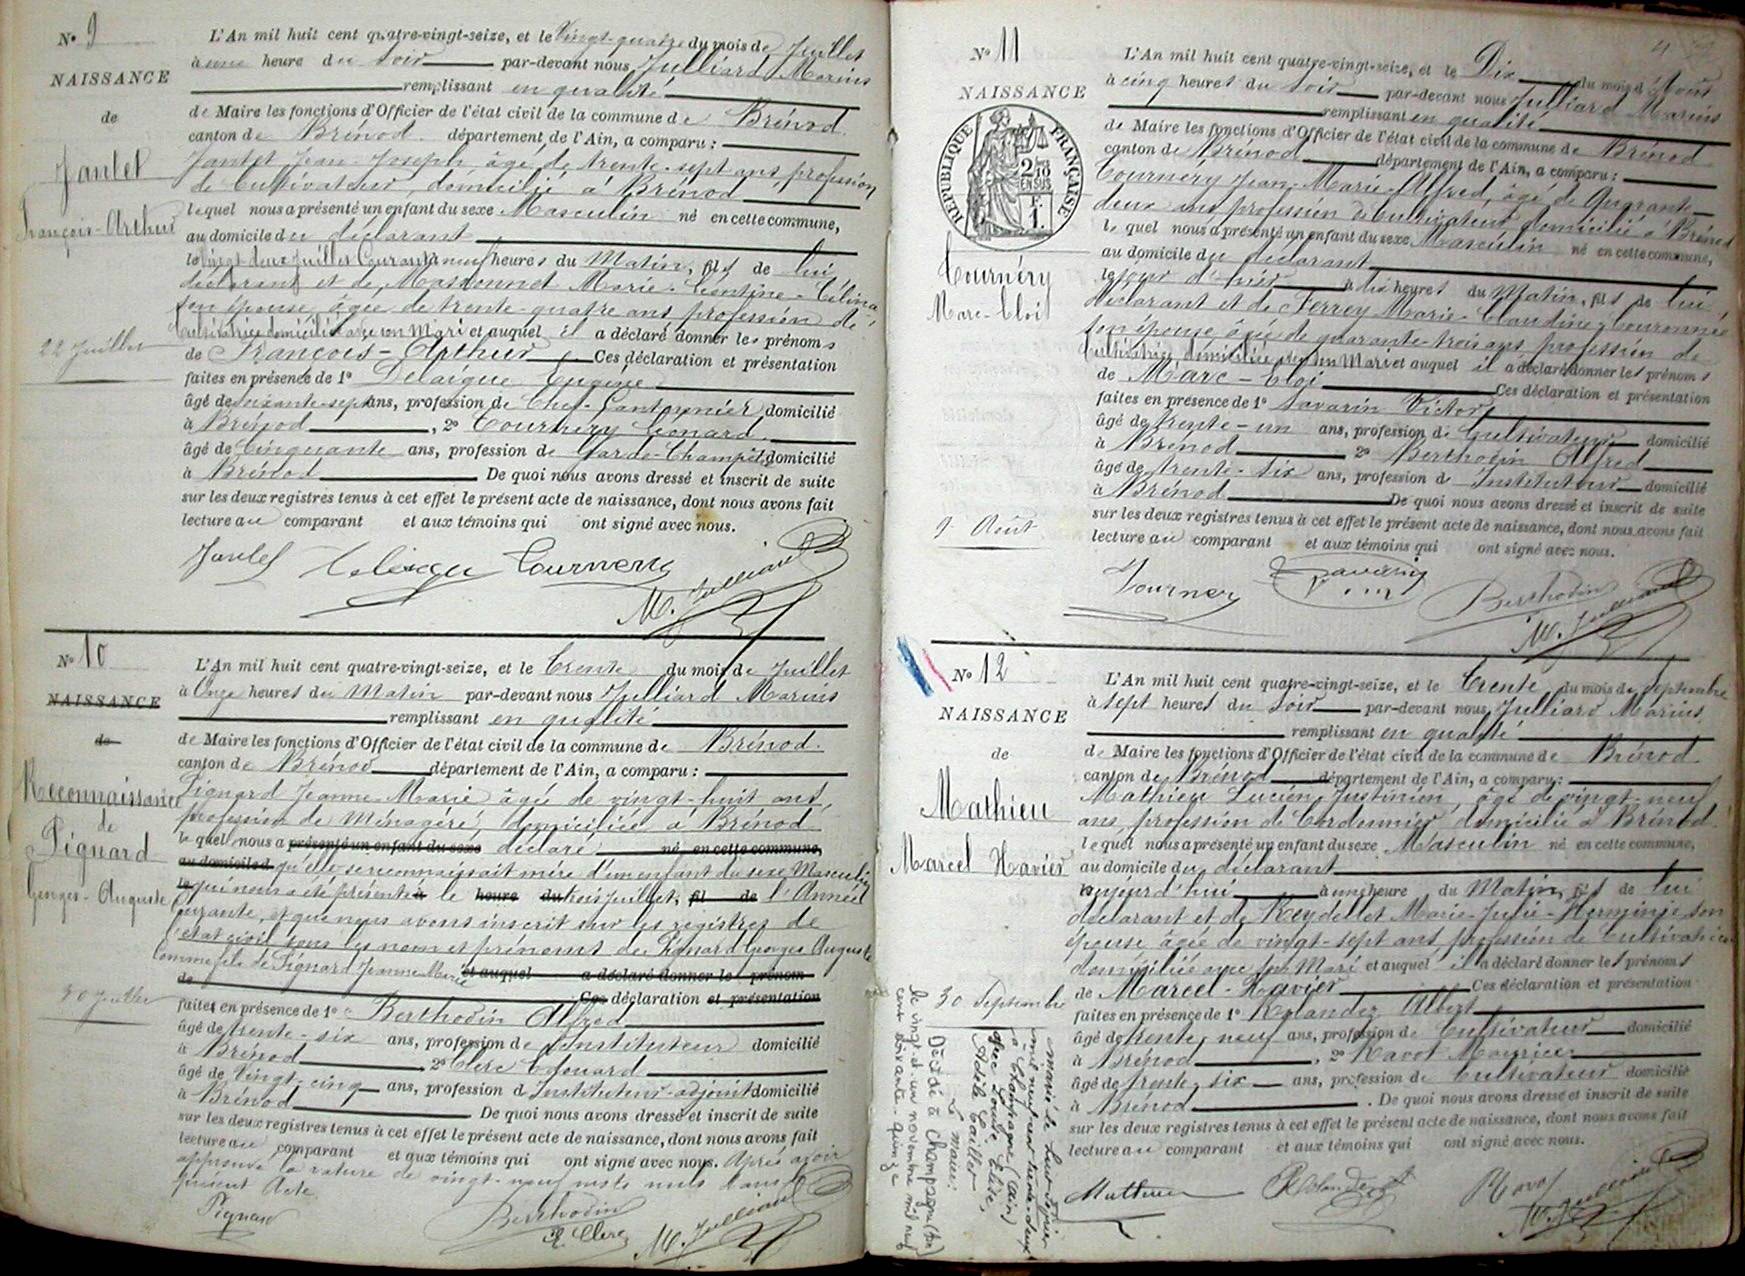 N° 9
NAISSANCE
de
Jantet
François-Arthur
22 Juillet
L'An mil huit cent quatre-vingt-seize, et le Vingt-quatre du mois de Juillet
à une heure du Soir par-devant nous Julliard Marius
remplissant en qualité
de Maire les fonctions d'Officier de l'état civil de la commune de Brénod
canton de Brénod département de l'Ain, a comparu :
Jantet Jean-Joseph âgé de trente-sept ans profession
de Cultivateur, domicilié à Brénod
lequel nous a présenté un enfant du sexe Masculin né en cette commune,
au domicile du déclarant
le vingt deux Juillet Courant à neuf heures du Matin, fils de lui
déclarant et de Massonnet Marie-Léontine-Célina
son épouse, âgée de trente-quatre ans profession de
Cultivatrice domiciliée avec son Mari et auquel il a déclaré donner les prénoms
de François-Arthur Ces déclaration et présentation
faites en présence de 1° Delaigue Eugène
âgé de soixante-sept ans, profession de Chef-Cantonnier domicilié
à Brénod, 2° Tournéry Léonard
âgé de Cinquante ans, profession de Garde-Champêtre domicilié
à Brénod De quoi nous avons dressé et inscrit de suite
sur les deux registres tenus à cet effet le présent acte de naissance, dont nous avons fait
lecture au comparant et aux témoins qui ont signé avec nous.
Jantet Tournery
M. Julliard
N° 10
NAISSANCE
de
Reconnaissance
de
Pignard
Georges-Auguste
30 Juillet
L'An mil huit cent quatre-vingt-seize, et le Trente du mois de Juillet
à Onze heures du Matin par-devant nous Julliard Marius
remplissant en qualité
de Maire les fonctions d'Officier de l'état civil de la commune de Brénod.
canton de Brénod département de l'Ain, a comparu :
Pignard Jeanne-Marie âgée de vingt-huit ans,
profession de Ménagère, domiciliée à Brénod
lequel nous a présenté un enfant du sexe déclaré né en cette commune,
au domicile d qu'elle se reconnaissait mère d'un enfant du sexe Masculin
le qui nous a été présenté à le heure du trois Juillet, fil de l'Année
Courante, et que nous avons inscrit sur les registres de
l'état civil sous les nom et prénoms de Pignard Georges Auguste
Comme fils de Pignard Jeanne-Marie et auquel a déclaré donner le prénom
de Ces déclaration et présentation
faites en présence de 1° Berthodin Alfred
âgé de trente-six ans, profession de Instituteur domicilié
à Brénod, 2° Clerc Edouard
âgé de Vingt-cinq ans, profession d'Instituteur-adjoint domicilié
à Brénod De quoi nous avons dressé et inscrit de suite
sur les deux registres tenus à cet effet le présent acte de naissance, dont nous avons fait
lecture au comparant et aux témoins qui ont signé avec nous. Après avoir
approuvé la rature de vingt-neuf mots nuls dans le
présent Acte.
Pignard Berthodin
E. Clerc M. Julliard
N° 11
NAISSANCE
RÉPUBLIQUE FRANÇAISE
2/10
EN SUS
1F.
Tournéry
Marc-Eloi
9 Août
L'An mil huit cent quatre-vingt-seize, et le Dix du mois d'Août
à cinq heures du Soir par-devant nous Julliard Marius
remplissant en qualité
de Maire les fonctions d'Officier de l'état civil de la commune de Brénod
canton de Brénod département de l'Ain, a comparu :
Tournéry Jean-Marie-Alfred, âgé de Quarante-
deux ans profession de Cultivateur domicilié à Brénod
lequel nous a présenté un enfant du sexe Masculin né en cette commune,
au domicile du déclarant
le jour d'hier à dix heures du Matin, fils de lui
déclarant et de Ferrey Marie-Claudine-Couronnée
son épouse âgée de quarante-trois ans profession de
Cultivatrice domiciliée avec son Mari et auquel il a déclaré donner les prénoms
de Marc-Eloi Ces déclaration et présentation
faites en présence de 1° Savarin Victor
âgé de trente-un ans, profession de Cultivateur domicilié
à Brénod 2° Berthodin Alfred
âgé de trente-six ans, profession d'Instituteur domicilié
à Brénod De quoi nous avons dressé et inscrit de suite
sur les deux registres tenus à cet effet le présent acte de naissance, dont nous avons fait
lecture au comparant et aux témoins qui ont signé avec nous.
Tournery Savarin Berthodin
M. Julliard
N° 12
NAISSANCE
de
Mathieu
Marcel Xavier
30 Septembre
Marié le huit février
mil neuf cent trente-deux
à Champagne (Ain)
avec Louise Elise,
Adèle Caillet
Le maire:
Décédé à Champagne (Ain)
le vingt et un novembre mil neuf
cent soixante-quinze
L'An mil huit cent quatre-vingt-seize, et le Trente du mois de Septembre
à sept heures du Soir par-devant nous Julliard Marius
remplissant en qualité
de Maire les fonctions d'Officier de l'état civil de la commune de Brénod
canton de Brénod département de l'Ain, a comparu :
Mathieu Lucien Justinien, âgé de vingt-neuf
ans, profession de Cordonnier domicilié à Brénod.
lequel nous a présenté un enfant du sexe Masculin né en cette commune,
au domicile du déclarant
aujourd'hui à une heure du Matin, fils de lui
déclarant et de Reydellet Marie-Julie-Herminie son
épouse âgée de vingt-sept ans profession de Cultivatrice
domiciliée avec son Mari et auquel il a déclaré donner les prénoms
de Marcel-Xavier Ces déclaration et présentation
faites en présence de 1° Rolandez Albert
âgé de trente neuf ans, profession de Cultivateur domicilié
à Brénod, 2° Ravot Maurice
âgé de trente six ans, profession de Cultivateur domicilié
à Brénod. De quoi nous avons dressé et inscrit de suite
sur les deux registres tenus à cet effet le présent acte de naissance, dont nous avons fait
lecture au comparant et aux témoins qui ont signé avec nous.
Mathieu Rolandez A Ravot
M. Julliard